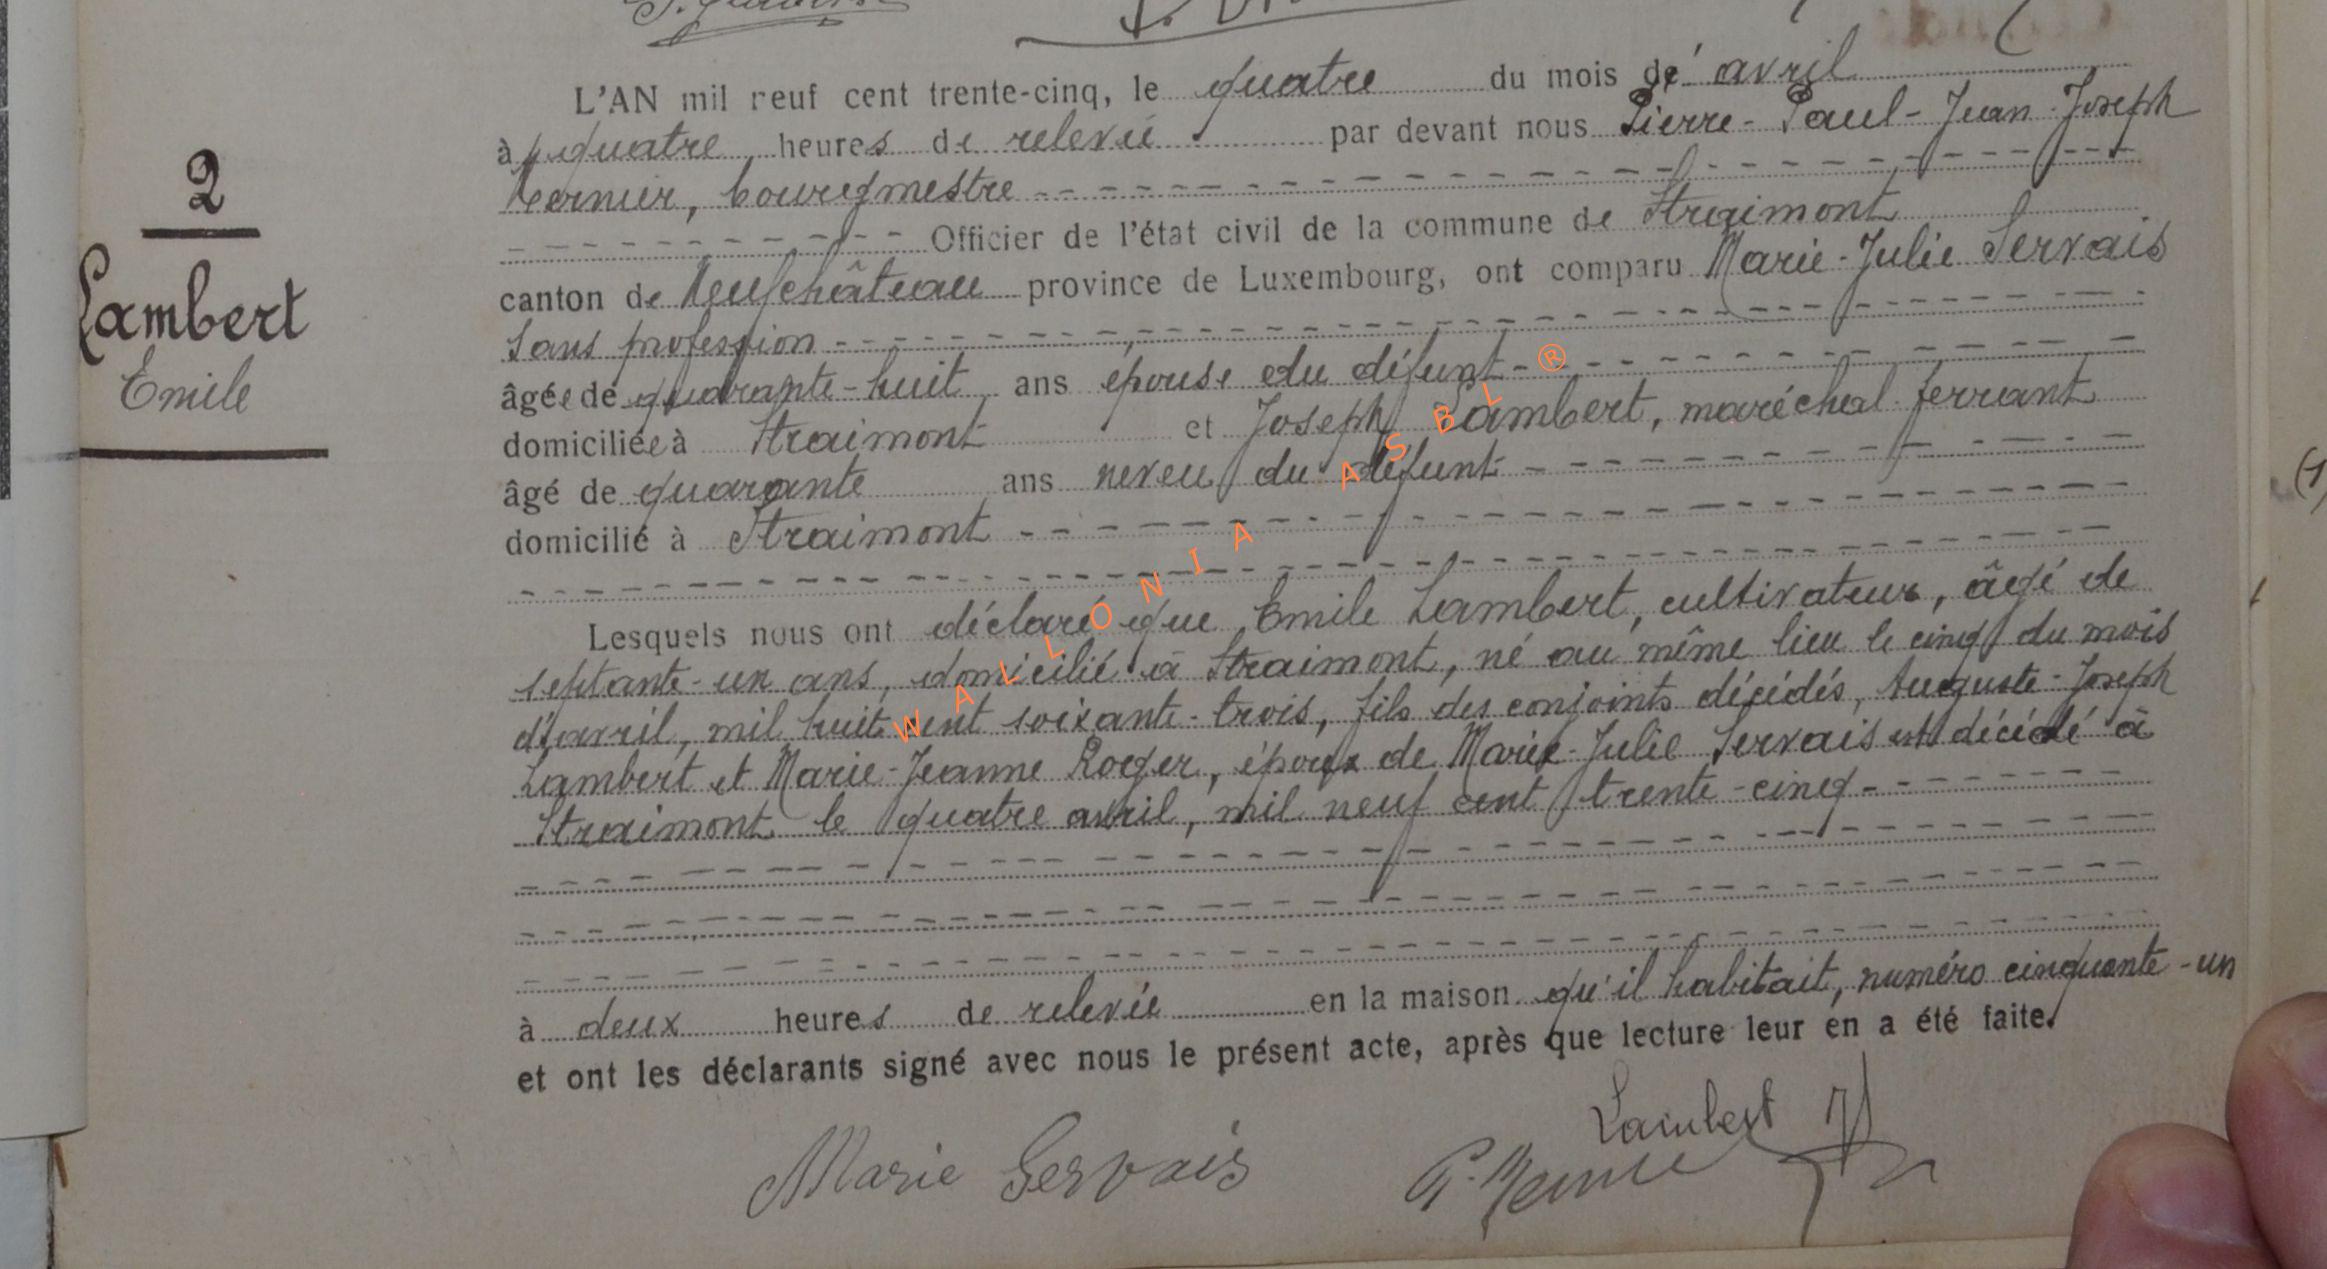 2
Lambert
Emile
L'AN mil neuf cent trente-cinq, le quatre du mois de avril
à quatre heures de relevée par devant nous Pierre-Paul-Jean-Joseph
bourgmestre
Officier de l'état civil de la commune de Straimont
canton de Neufchâteau province de Luxembourg, ont comparu Marie-Julie Servais
sans profession
âgée de quarante-huit ans épouse du défunt
domiciliée à Straimont et Joseph Lambert, maréchal-ferrant
âgé de quarante ans neveu du défunt
domicilié à Straimont
Lesquels nous ont déclaré que Emile Lambert, cultivateur, âgé de
septante-un ans, domicilié à Straimont, né au même lieu le cinq du mois
d'avril, mil huit cent soixante-trois, fils des conjoints décédés, Auguste-Joseph
Lambert et Marie-Jeanne Roger, époux de Marie-Julie Servais est décédé à
Straimont le quatre avril, mil neuf cent trente-cinq
à deux heures de relevée en la maison qu'il habitait, numéro cinquante-un
et ont les déclarants signé avec nous le présent acte, après que lecture leur en a été faite.
Lambert
Marie Servais
WALLONIA ASBL ®
(1)